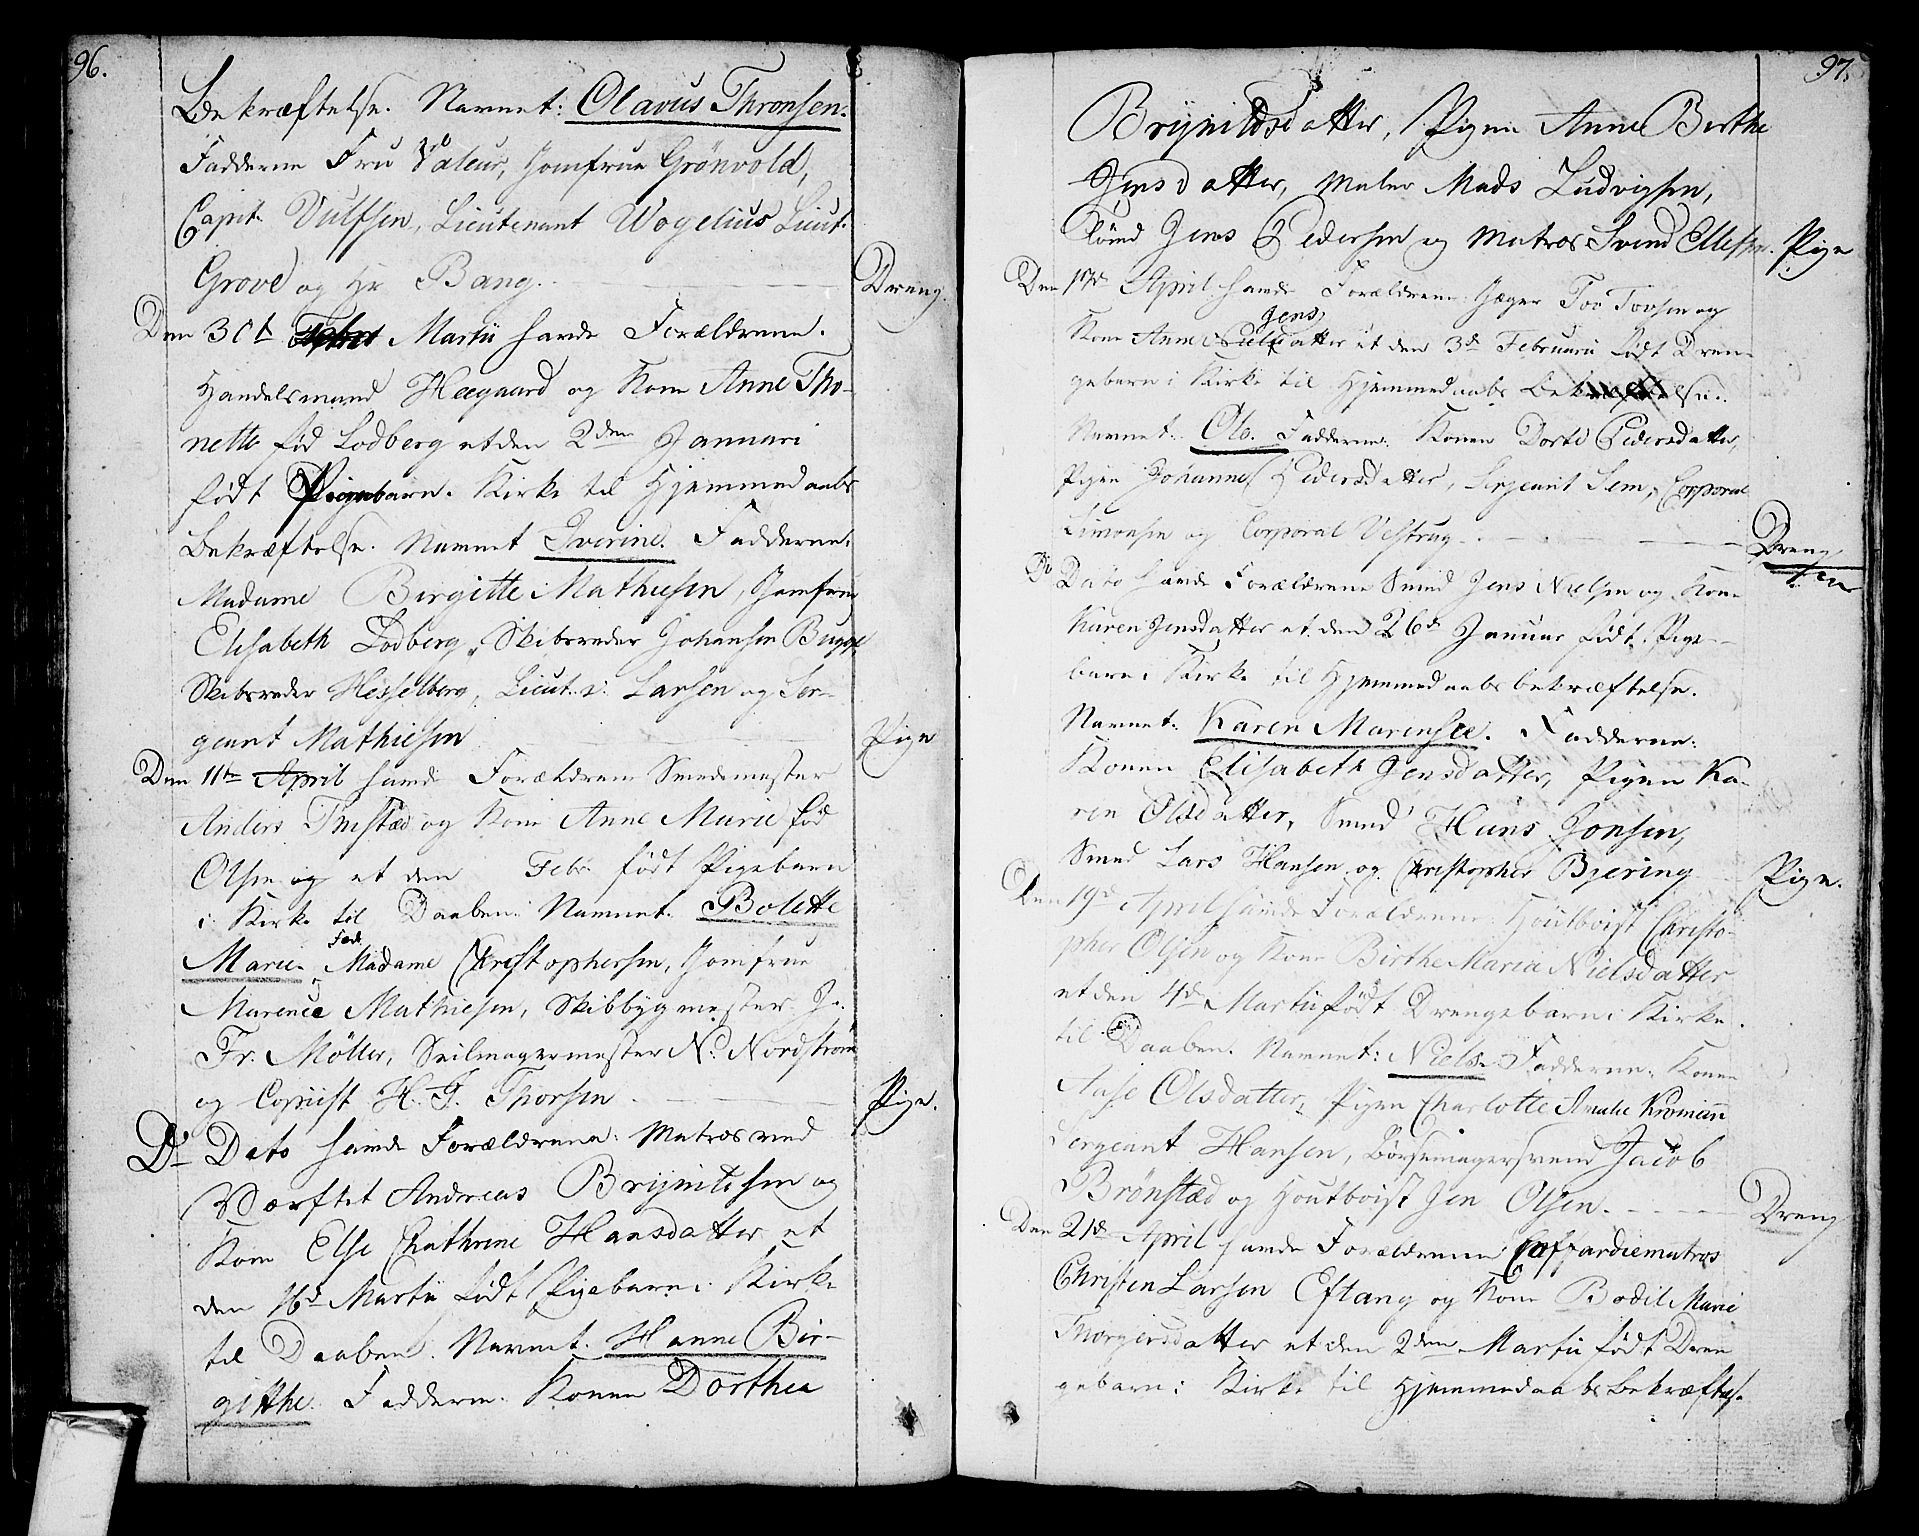 96.
Bekræftelse. Navnet: Olavus Thronsen.
Fadderne Fru Valeur, Jomfrue Grönvold,
Capit. Vulfsen, Lieutenant Wogelius Lieut.
Grove og Hr Bang. Dreng.
Den 30t Martii havde Forældrene.
Handelsmand Heegaard og Kone Anne Tho-
nette fød Lodberg et den 2den Januari
født Pigebarn. Kirke til Hjemmedaabs
Bekræftelse. Navnet Iverine. Fadderne.
Madame Birgitte Mathiesen, Jomfrue
Elisabeth Lodberg, Skibsreder Johansen Bugge,
Skibsreder Hesselberg, Lieut. v. Larsen og Ser-
geant Mathiesen Pige
Den 11te April havde Forældrene Smedemester
Anders og Kone Anne Marie fød
Olsen og et den Febr. født Pigebarn
i Kirke til Daaben. Navnet. Bolette
Marie. Fad. Madame Christophersen, Jomfrue
Marence Mathiesen, Skibbygmester J.
Fr. Möller, Seilmagermester N. Nordstrøm
og Copiist H. J. Thorsen. Pige.
Do Dato havde Forældrene. Matros ved
Værftet Andreas Brynildsen og
Kone Else Chathrine Hansdatter et
den 16d Martii født Pigebarn i Kirke
til Daaben. Navnet. Hanne Bir-
gitthe. Fadderne. Konen Dorthea
97.
Brynildsdatter, Pigen Anne Birthe
Jensdatter, Maler Mads Ludvigsen,
Jens Pedersen og Matros Svend Ellefsen. Pige
Den 17d April havde Forældrene Jæger Tov Tovsen og
Kone Anne Jensdatter et den 3d Februarii født Dren-
gebarn i Kirke til Hjemmedaabs Bekræftelse.
Navnet. Ole. Fadderne. Konen Dorte Pedersdatter,
Pigen Johanne Pedersdatter, Sergeant Sem, Corporal
Simonsen og Corporal Vestrug. Dreng
Do Dato havde Forældrene Smed Jens Nielsen og Kone
Karen Jensdatter et den 26d Januar født Pige-
barn i Kirke til Hjemmedaabsbekræftelse.
Navnet. Karen Marensee. Fadderne.
Konen Elisabeth Jensdatter, Pigen Ka-
ren Olsdatter, Smed Hans Jonsen,
Smed Lars Hansen og Christopher Bjering Pige.
Den 19d April havde Forældrene Houtboist Christo-
pher Olsen og Kone Birthe Maria Nielsdatter
et den 4d Martii født Drengebarn i Kirke
til Daaben. Navnet: Niels. Fadderne. Konen
Aase Olsdatter, Pigen Charlotte Amalie Kromann
Sergeant Hansen, Børsemagersvend Jacob
Brönstæd og Houtboist Jen Olsen. Dreng
Den 21d April havde Forældrene Coffardiematros
Christen Larsen Eftang og Kone Bodil Marie
Thorgersdatter et den 2den Martii født Dren
gebarn i Kirke til Hjemmedaabs Bekræftel-